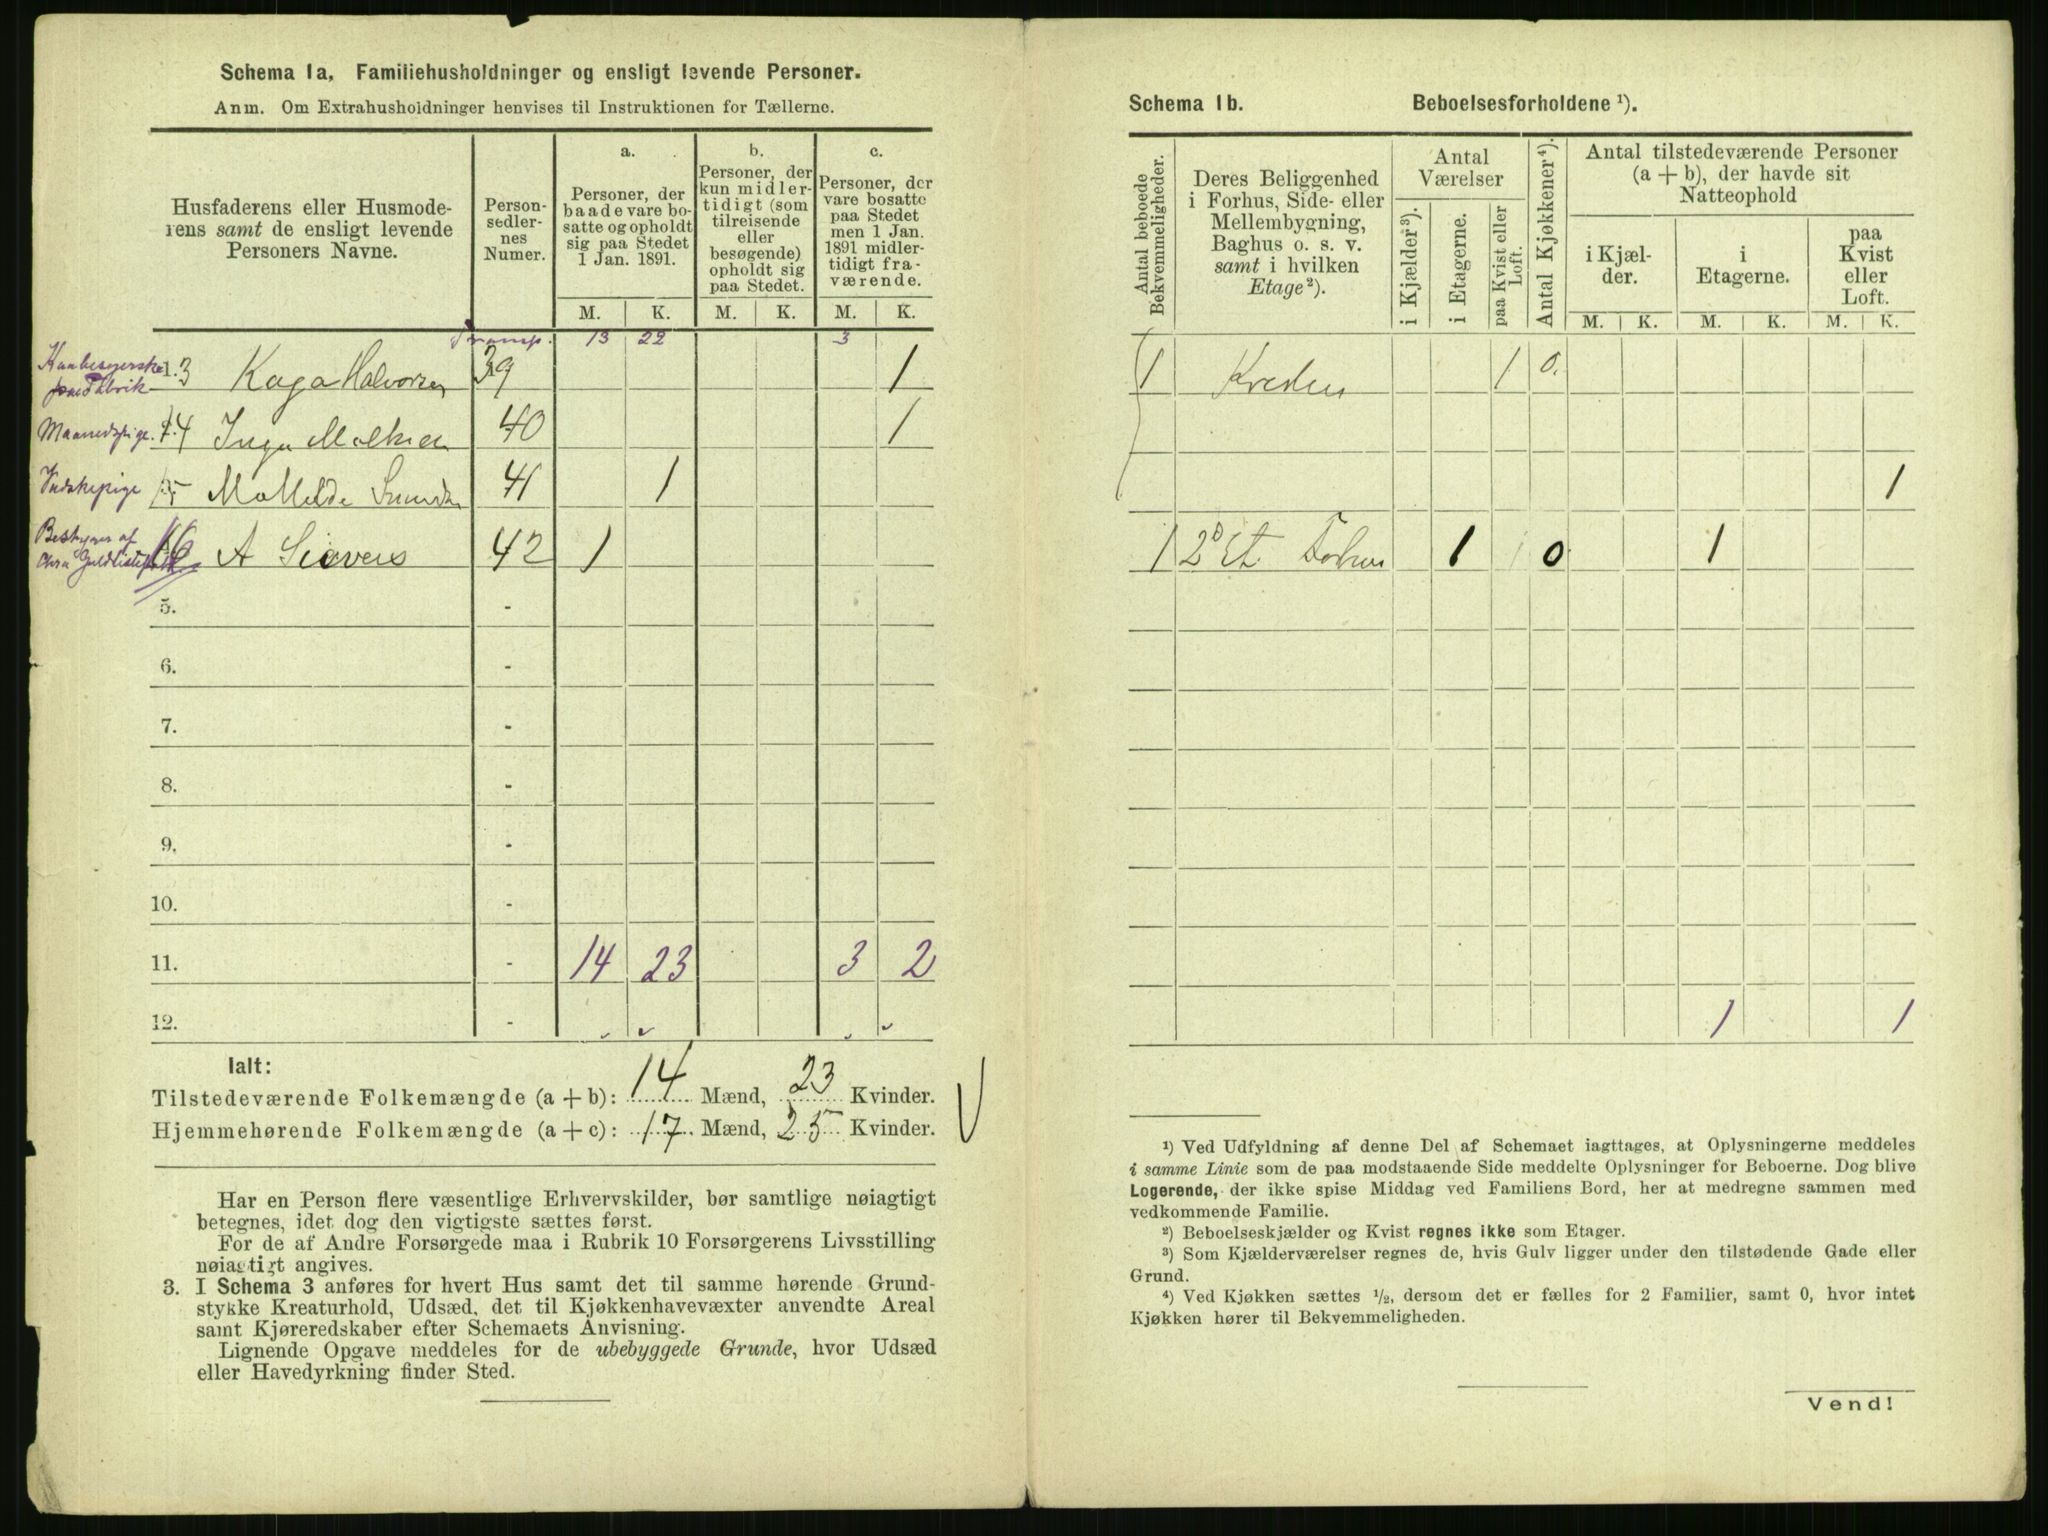 Schema 1a, Familiehusholdninger og ensligt levende Personer.
Anm. Om Extrahusholdninger henvises til Instruktionen for Tællerne.
Husfaderens eller Husmode-
rens samt de ensligt levende
Personers Navne.
Person-
sedler-
nes
Numer.
a.
Personer, der
baade vare bo-
satte og opholdt
sig paa Stedet
1 Jan. 1891.
b.
Personer, der
kun midler-
tidigt (som
tilreisende
eller
besøgende)
opholdt sig
paa Stedet.
c.
Personer, der
vare bosatte
paa Stedet
men 1 Jan.
1891 midler-
tidigt fra-
værende.
M. K. M. K. M. K.
Transp. 13 22 3
13 Kaga Halvorsen 39 1
Maanedspige. 14 Inga 40 1
15 Mathilde 41 1
Bestyrer af
16 A Sievers 42 1
5. -
6. -
7. -
8. -
9. -
10. -
11. - 14 23 3 2
12. -
Ialt:
Tilstedeværende Folkemængde (a + b): 14 Mænd, 23 Kvinder.
Hjemmehørende Folkemængde (a + c): 17 Mænd, 25 Kvinder.
Har en Person flere væsentlige Erhvervskilder, bør samtlige nøiagtigt
betegnes, idet dog den vigtigste sættes først.
For de af Andre Forsørgede maa i Rubrik 10 Forsørgerens Livsstilling
nøiagtigt angives.
3. I Schema 3 anføres for hvert Hus samt det til samme hørende Grund-
stykke Kreaturhold, Udsæd, det til Kjøkkenhavevæxter anvendte Areal
samt Kjøreredskaber efter Schemaets Anvisning.
Lignende Opgave meddeles for de ubebyggede Grunde, hvor Udsæd
eller Havedyrkning finder Sted.
Schema 1b. Beboelsesforholdene ¹).
Antal beboede
Bekvemmeligheder.
Deres Beliggenhed
i Forhus, Side- eller
Mellembygning,
Baghus o. s. v.
samt i hvilken
Etage ²).
Antal
Værelser
i Kjælder ³).
i Etagerne.
paa Kvist eller
Loft.
Antal Kjøkkener ⁴).
Antal tilstedeværende Personer
(a + b), der havde sit
Natteophold
i Kjæl-
der.
i
Etagerne.
paa
Kvist
eller
Loft.
M. K. M. K. M. K.
1 1 0.
1
1 2d Et. 1 0 1
1 1
¹) Ved Udfyldning af denne Del af Schemaet iagttages, at Oplysningerne meddeles
i samme Linie som de paa modstaaende Side meddelte Oplysninger for Beboerne. Dog blive
Logerende, der ikke spise Middag ved Familiens Bord, her at medregne sammen med
vedkommende Familie.
²) Beboelseskjælder og Kvist regnes ikke som Etager.
³) Som Kjælderværelser regnes de, hvis Gulv ligger under den tilstødende Gade eller
Grund.
⁴) Ved Kjøkken sættes ½, dersom det er fælles for 2 Familier, samt 0, hvor intet
Kjøkken hører til Bekvemmeligheden.
Vend!